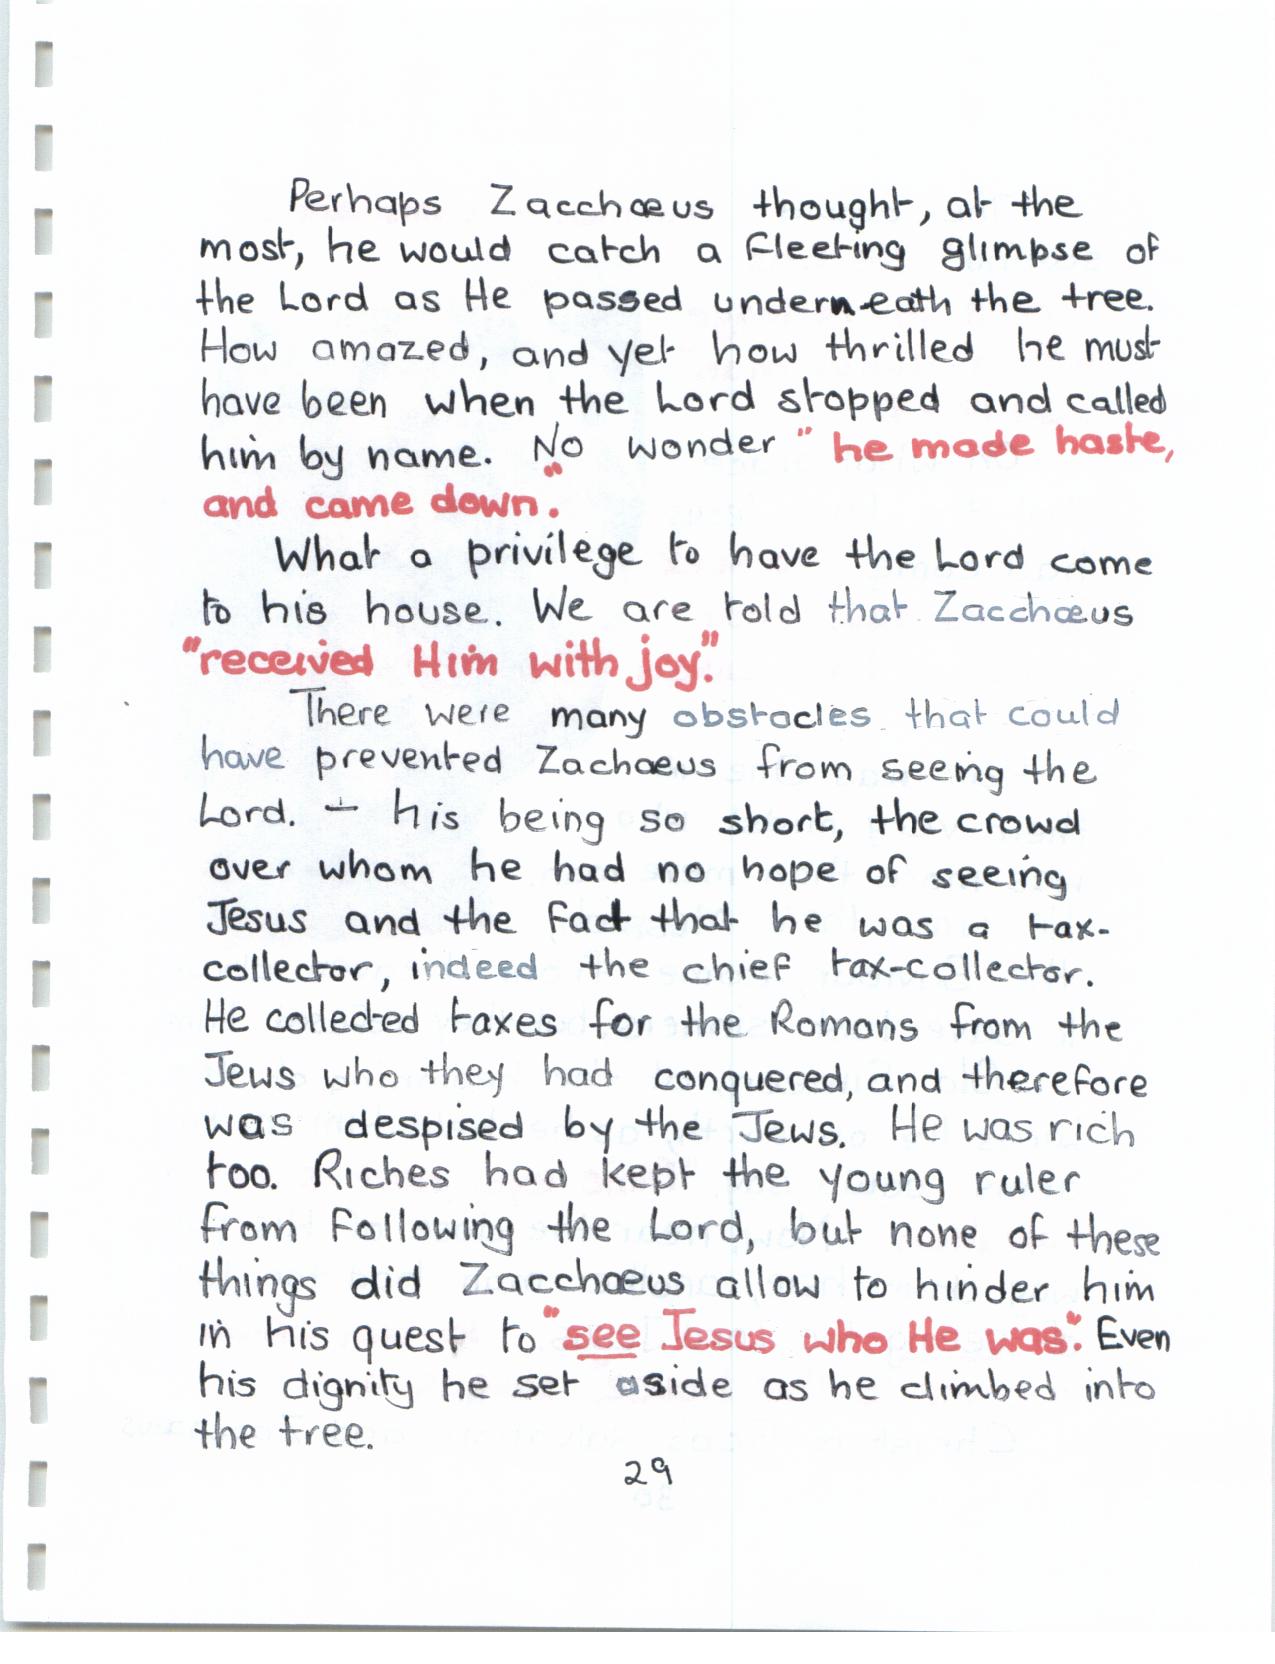 Perhaps Zacchæus thought, at the
most, he would catch a fleeting glimpse of
the Lord as He passed underneath the tree.
How amazed, and yet how thrilled he must
have been when the Lord stopped and called
him by name. No wonder "he made haste,
and came down."
What a privilege to have the Lord come
to his house. We are told that Zacchæus
"received Him with joy."
There were many obstacles that could
have prevented Zachaeus from seeing the
Lord. – his being so short, the crowd
over whom he had no hope of seeing
Jesus and the fact that he was a tax-
collector, indeed the chief tax-collector.
He collected taxes for the Romans from the
Jews who they had conquered, and therefore
was despised by the Jews. He was rich
too. Riches had kept the young ruler
from following the Lord, but none of these
things did Zacchaeus allow to hinder him
in his quest to "see Jesus who He was". Even
his dignity he set aside as he climbed into
the tree.
29